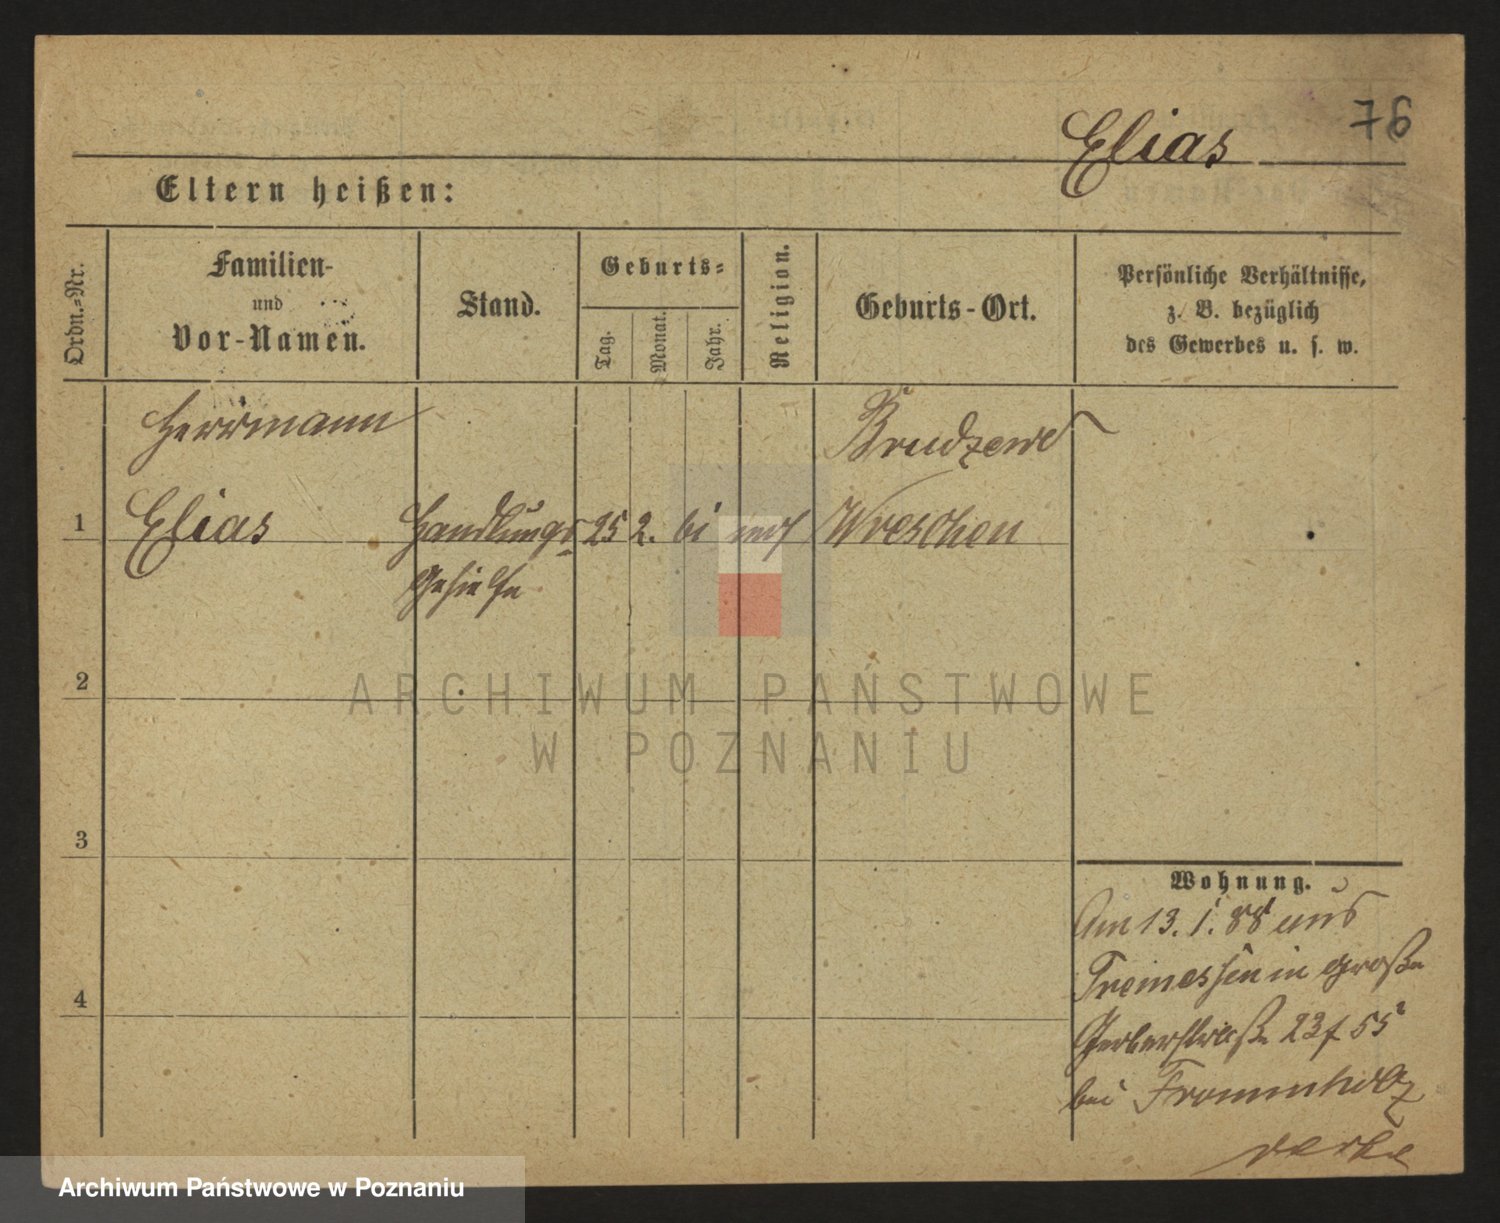 76
Elias
Eltern heißen:
Ordn.=Nr.
Familien-
und
Vor-Namen.
Stand.
Geburts=
Tag.
Monat.
Jahr.
Religion.
Geburts-Ort.
Persönliche Verhältnisse,
z. B. bezüglich
des Gewerbes u. s. w.
Herrmann
Brudzewo
1
Elias
Handlungs
25
2.
Wreschen
Gehielfe
2
ARCHIWUM PAŃSTWOWE
W POZNANIU
3
Wohnung.
Am 13. 1. 88 aus
Tremessen in große
4
Gerberstraße 23 f 55
bei Frommholz
Archiwum Państwowe w Poznaniu